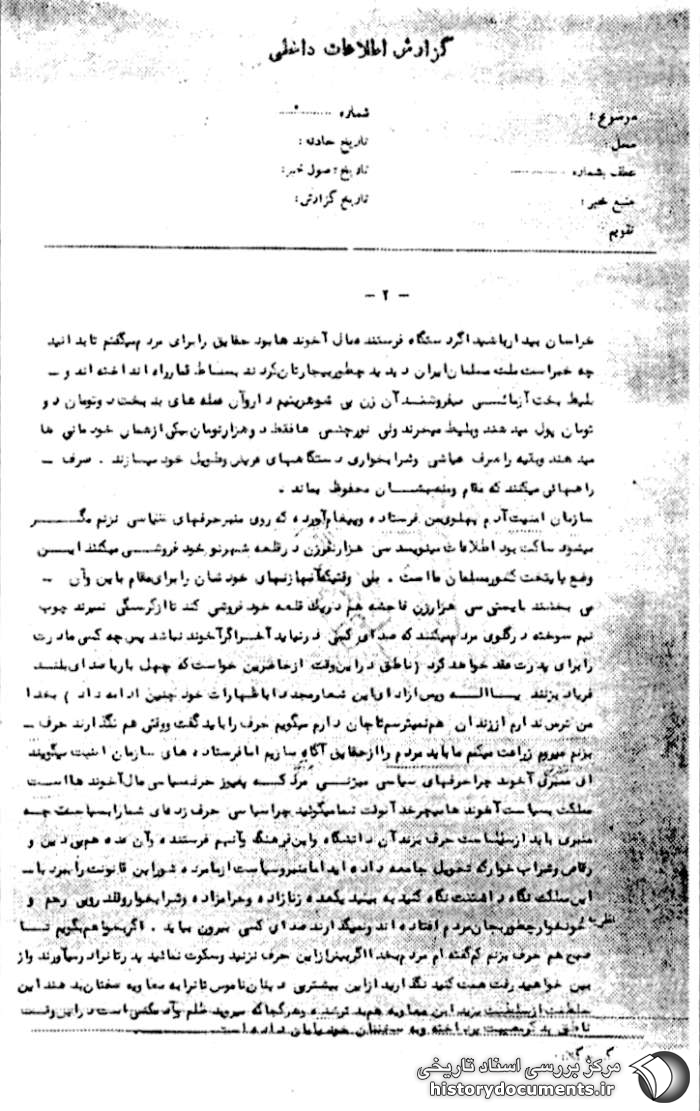 گزارش اطلاعات داخلی
موضوع :
شماره
محل :
تاریخ حادثه :
عطف بشماره
تاریخ وصول خبر:
منبع خبر :
تاریخ گزارش :
تقویم
- ۲ -
خراسان بیدار باشید اگر دستگاه فرستنده مال آخوند ها بود حقایق را برای مردم میگفتم تا بدانید
چه خبر است ملت مسلمان ایران دیدید چطور بیچارتان کردند بساط قمار راه انداخته اند و -
بلیط بخت آزمائی میفروشند آن زن بی شوهر یتیم دار و آن عمله های بدبخت دو تومان دو
تومان پول میدهند و بلیط میخرند ولی نورچشمی ها فقط دو هزار تومان یکی از همان خودمانی ها
میدهند وبقیه را صرف عیاشی وشرابخواری دستگاههای عریض وطویل خود میسازند . صرف -
راههائی میکنند که مقام ومنصبشان محفوظ بماند .
سازمان امنیت آدم پهلوی من فرستاده وپیغام آورده که روی منبر حرفهای سیاسی نزنم مگر
میشود ساکت بود اطلاعات مینویسد سی هزار نفر زن در قلعه شهرنو خود فروشی میکنند این
وضع پایتخت کشور مسلمان ما است . بلی وقتیکه آنها زنهای خودشان را برای مقام باین وآن -
می بخشند بایستی سی هزار زن فاحشه هم در یک قلعه خود فروشی کند تا از گرسنگی نمیرند چوب
نیم سوخته در گلوی مردم میکنند که صدای کسی در نیاید آخر اگر آخوند نباشد پس چه کسی مادرت
را برای پدرت عقد خواهد کرد (ناطق در این وقت از حاضرین خواست که چهل بار با صدای بلند
فریاد بزنند یا الله وپس از ادای این شعار مجددا باظهارات خود چنین ادامه داد ) بخدا
من ترس ندارم از زندان هم نمیترسم تا جان دارم میگویم حرف را باید گفت ووقتی هم نگذارند حرف -
بزنم میروم زراعت میکنم ما باید مردم را از حقایق آگاه سازیم اما فرستاده های سازمان امنیت میگویند
ای منبری آخوند چرا حرفهای سیاسی میزنی مردکه بفهموز حرف سیاسی مال آخوند ها است
مملکت بسیاست آخوند ها میچرخد آنوقت شما میگوئید چرا سیاسی حرف زده ای شما را بسیاست چه
منبری باید از سیاست حرف بزند آن دانشگاه واین فرهنگ وآنهم فرستنده وآن عده هم بی دین و
رقاص وشراب خوار که تحویل جامعه داده اید اما منبر وسیاست از ما مرده شور این قانونت را ببرد با -
این مملکت نگاه داشتنت نگاه کنید به بینید یکعده زنازاده وحرامزاده وشرابخوار وقلدر وبی رحم و
خونخوار چطور بجان مردم افتاده اند ونمیگذارند صدای کسی بیرون بیاید . اگر بخواهم بگویم تا
نظریه
صبح هم حرف بزنم کم گفته ام مردم بخدا اگر بیش از این حرف نزنید وسکوت نمائید پدرتان را در میآورند واز
بین خواهید رفت همت کنید نگذارید از این بیشتر دین تان ناموس تان را به معاویه صفتان بدهند این
سلطنت از سلطنت یزید ابن معاویه هم بدتر شده وهر کجا که میروید ظلم وآدمکشی است در این وقت
ناطق بذکر مصیبت پرداخته وبه سخنان خود پایان داده است
مرکز بررسی اسناد تاریخی
historydocuments.ir